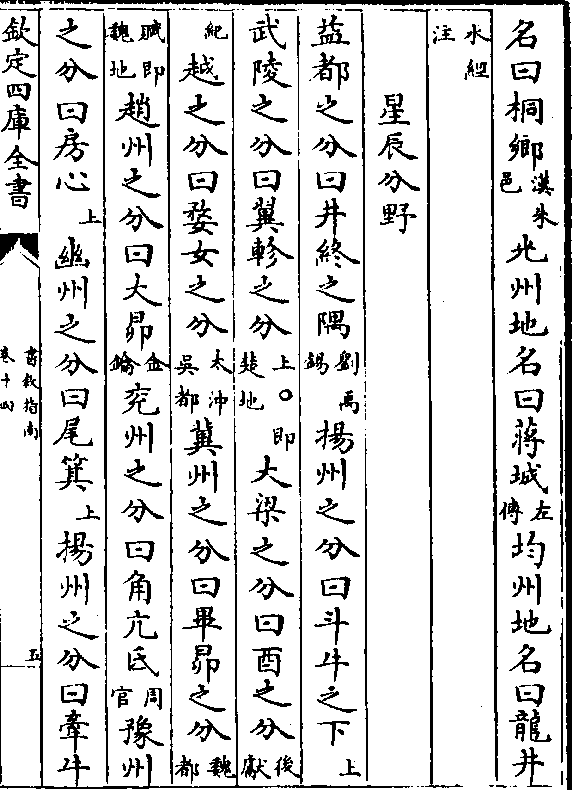 名曰桐鄉漢朱邑光州地名曰蔣城左傳均州地名曰龍井
水經注
星辰分野
益都之分曰井終之隅劉禹錫揚州之分曰斗牛之下上
武陵之分曰翼軫之分上○即楚地大梁之分曰酉之分後獻
紀越之分曰婺女之分太沖吳都冀州之分曰畢昴之分魏都
賦即魏地趙州之分曰大昴金鑰兖州之分曰角亢氐周官豫州
之分曰房心上幽州之分曰尾箕上揚州之分曰牽牛
欽定四庫全書
書敘指南
卷十四
五